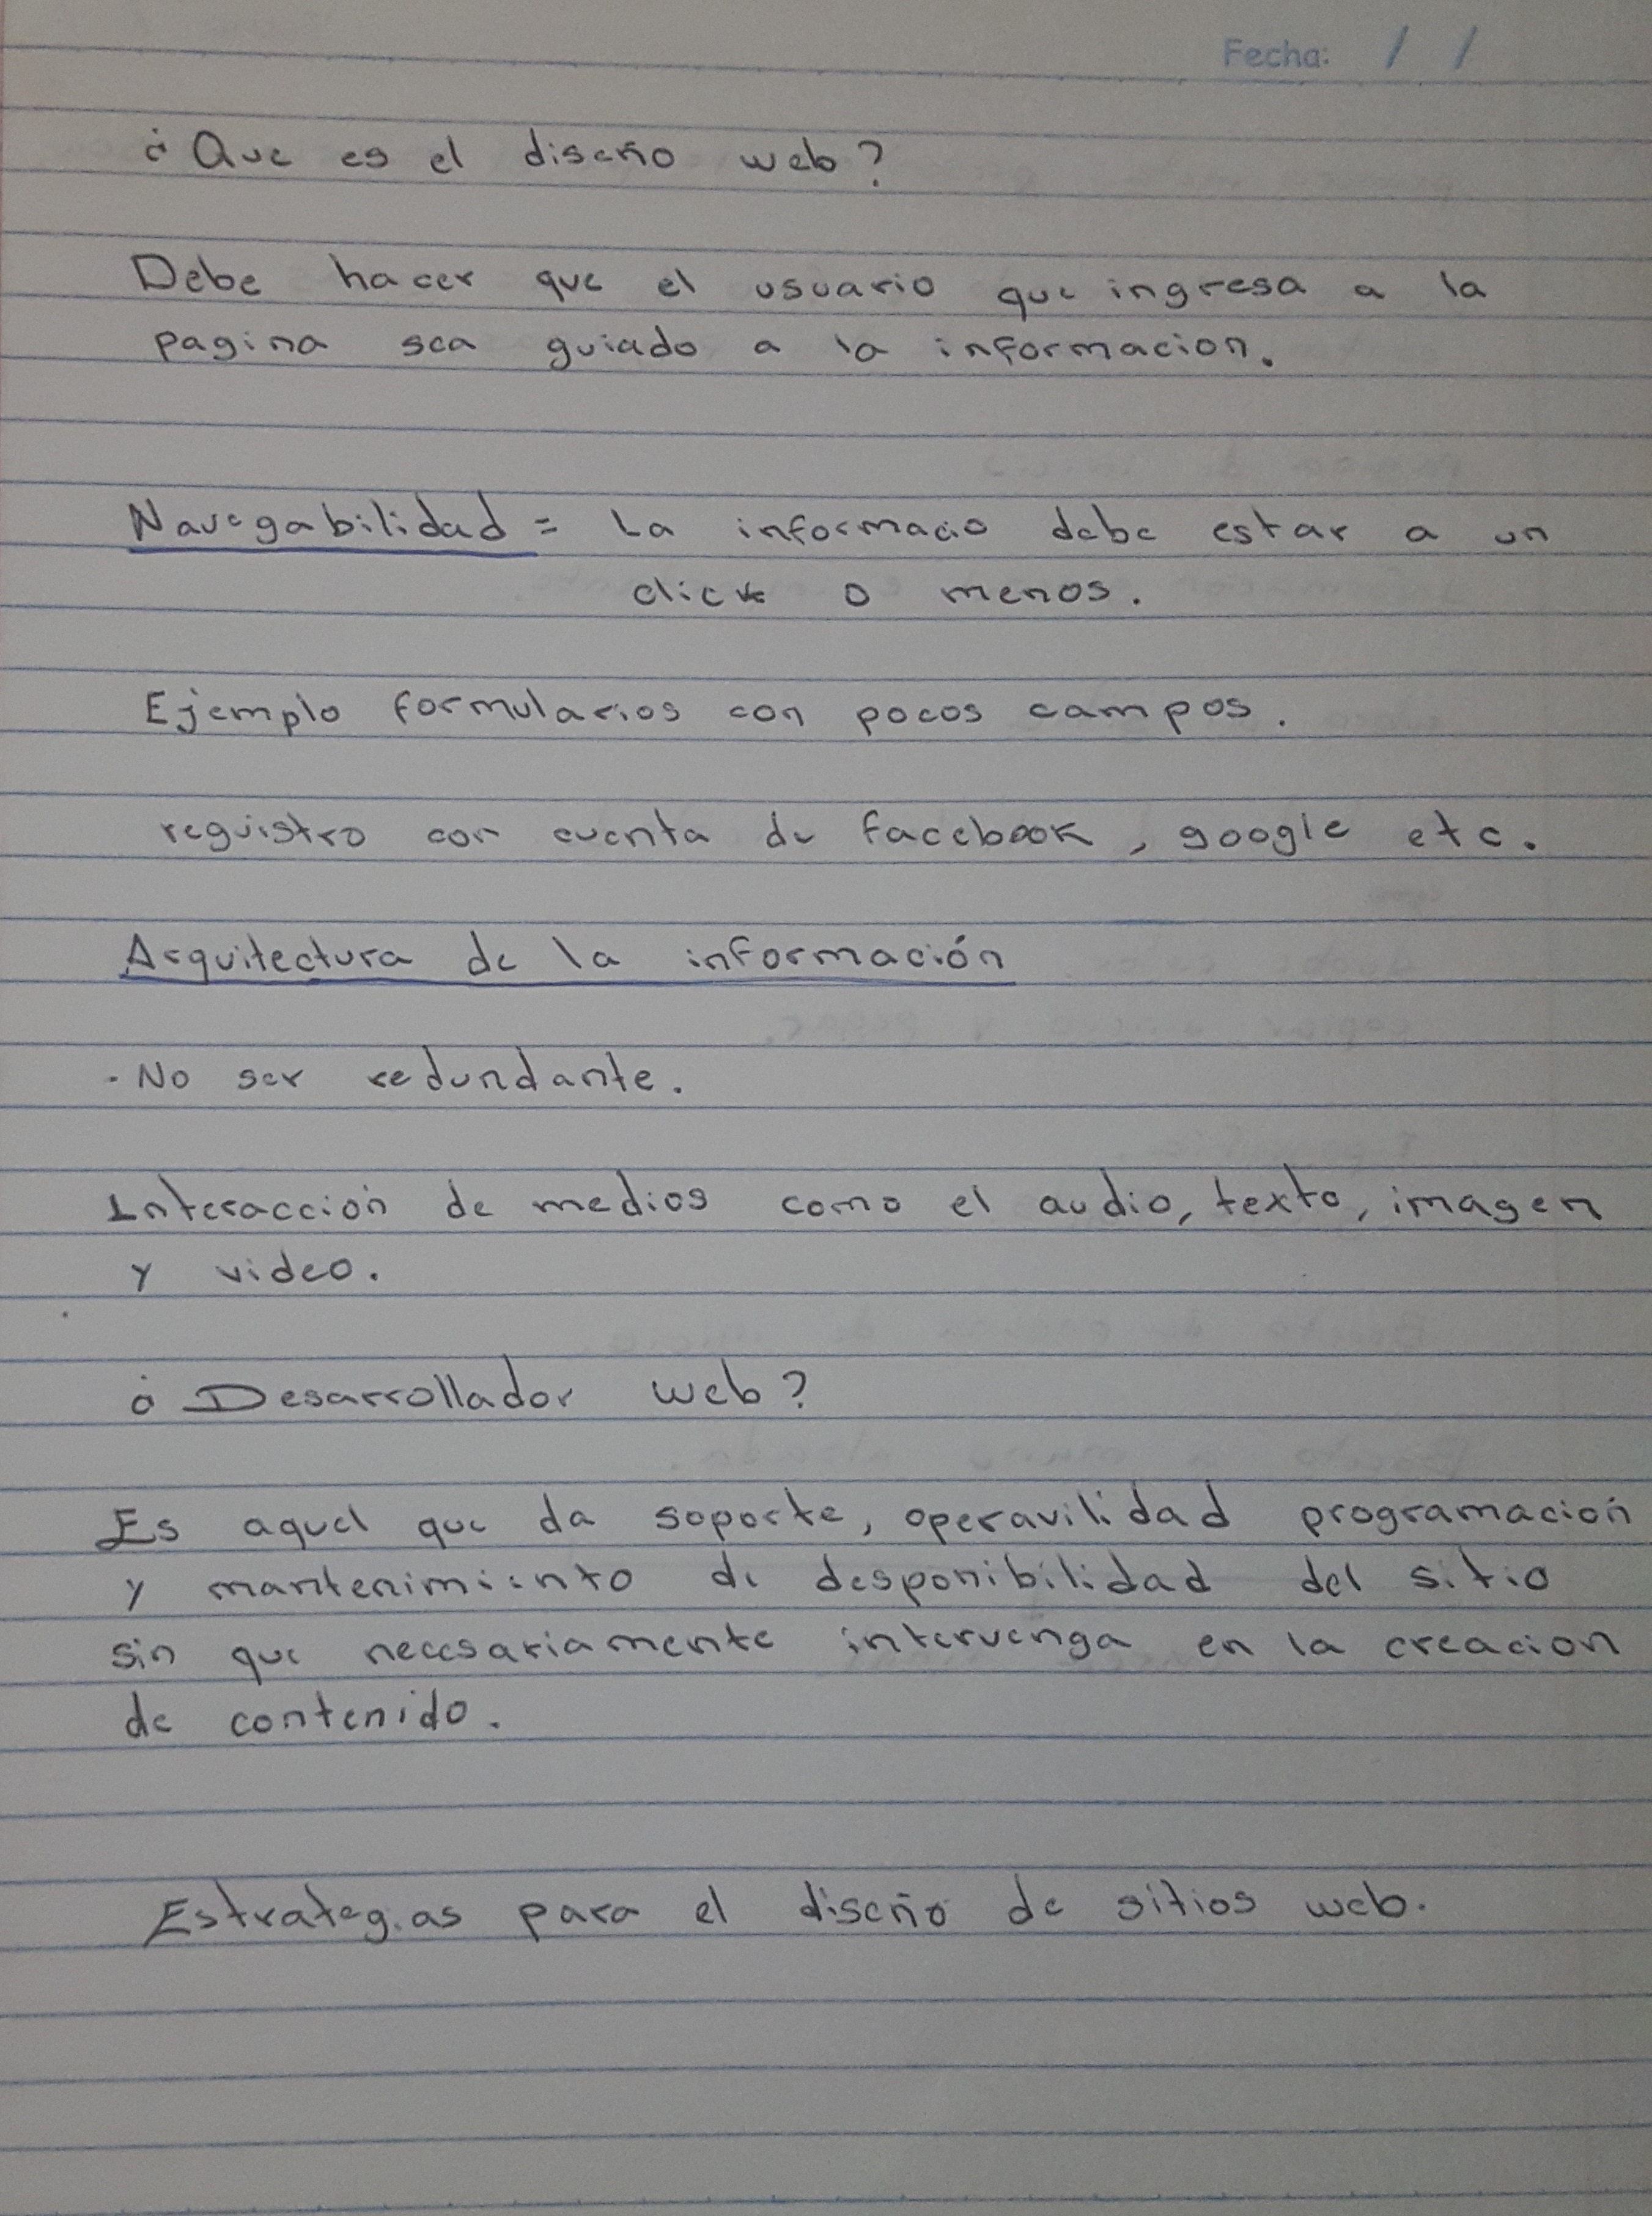 Fecha: / /
¿Que es el diseño web?
Debe hacer que el usuario que ingresa a la
pagina sea guiado a la informacion.
Navegabilidad = La informacio debe estar a un
click o menos.
Ejemplo formularios con pocos campos.
reguistro con cuenta de facebook, google etc.
Arquitectura de la información
- No ser redundante.
Interacción de medios como el audio, texto, imagen
y video.
¿Desarrollador web?
Es aquel que da soporte, operavilidad programación
y mantenimiento de desponibilidad del sitio
sin que necesariamente intervenga en la creacion
de contenido.
Estrategias para el diseño de sitios web.